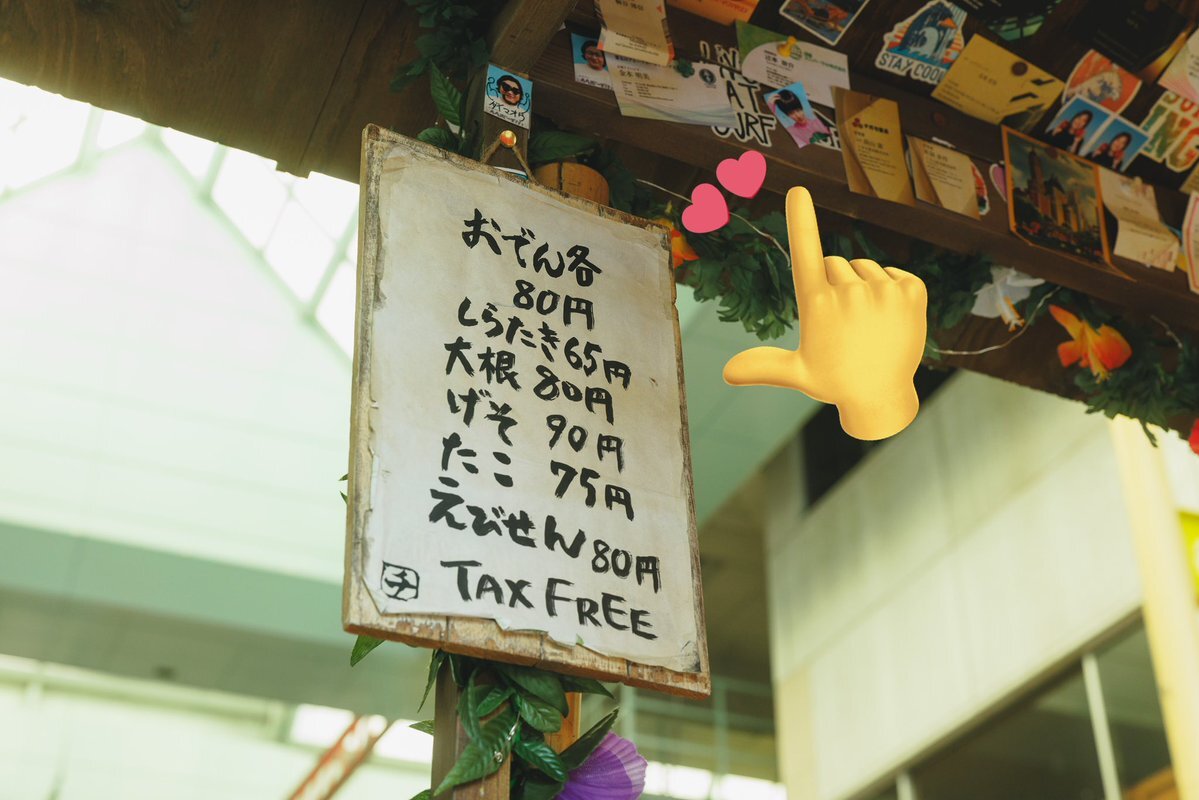 おでん各
80円
しらたき65円
大根 80円
げそ 90円
たこ 75円
えびせん80円
TAX FREE
STAY COOL